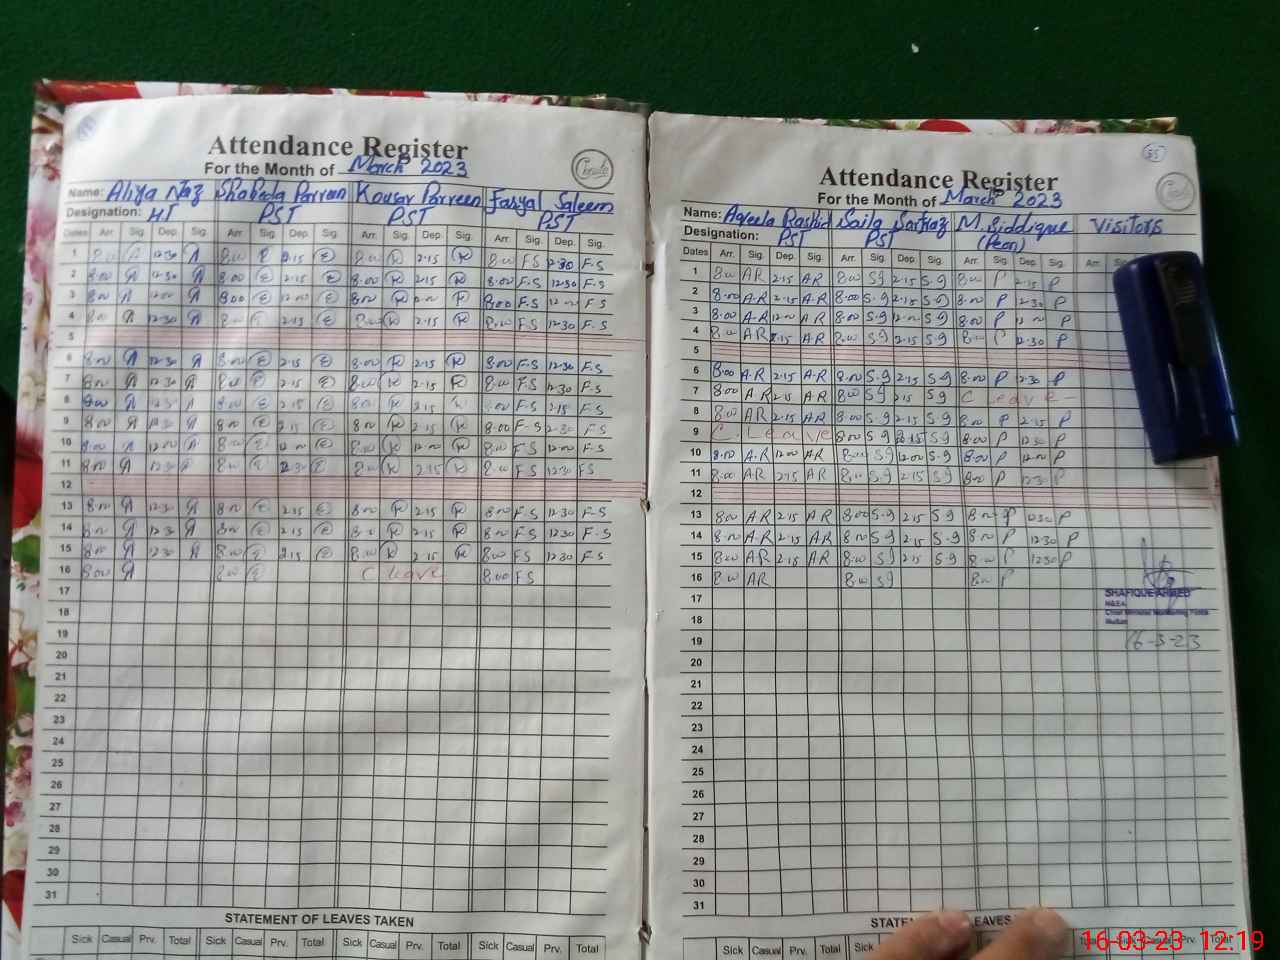 Attendance Register
For the Month of March 2023
Name: Aliya Naz Shaheda Parveen Kousar Parveen Faryal Saleem
Designation: HT PST PST PST
Dates Arr. Sig. Dep. Sig. Arr. Sig. Dep. Sig. Arr. Sig. Dep. Sig. Arr. Sig. Dep. Sig.
1 12:30 8.00 2.15 8.00 2.15 8.00 F S 12:30 F.S
2 8.00 12:30 8.00 2.15 8.00 2.15 8.00 F.S 12:30 F.S
3 8.00 12.00 8.00 12.00 8.00 12.00 8.00 F S 12.00 F S
4 8.00 12:30 8.00 2.15 8.00 2.15 8.00 F S 12:30 F.S
5
6 8.00 12:30 8.00 2.15 8.00 2.15 8.00 F.S 12:30 F.S
7 8.00 12:30 8.00 2.15 8.00 2.15 8.00 F S 12:30 F.S
8 8.00 8.00 2.15 8.00 2.15 8.00 F S 2.15 F.S
9 8.00 12:30 8.00 2.15 8.00 2.15 8.00 F-S F S
10 8.00 12.00 8.00 12.00 8.00 12.00 8.00 F S 12.00 F S
11 8.00 12:30 8.00 2:30 8.00 2.15 8.00 F S 12:30 F S
12
13 8.00 12:30 8.00 2.15 8.00 2.15 8.00 F.S 12:30 F.S
14 8.00 12:30 8.00 2.15 8.00 2.15 8.00 F S 12:30 F.S
15 8.00 12:30 8.00 2.15 8.00 2.15 8.00 F S 12:30 F.S
16 8.00 8.00 C leave 8.00 F S
17
18
19
20
21
22
23
24
25
26
27
28
29
30
31
STATEMENT OF LEAVES TAKEN
Sick Casual Prv. Total Sick Casual Prv. Total Sick Casual Prv. Total Sick Casual Prv. Total
35
Attendance Register
For the Month of March 2023
Name: Aqeela Rashid Saila Sarfraz M. Siddique Visitors
Designation: PST PST (Peon)
Dates Arr. Sig. Dep. Sig. Arr. Sig. Dep Sig. Arr. Sig. Dep. Sig. Arr.
1 8.00 AR 2.15 AR 8.00 S9 2.15 S.9 8.00 P 2.15 P
2 8.00 A.R 2.15 A.R 8.00 S.9 2.15 S.9 8.00 P 2:30 P
3 8.00 A.R 12.00 A.R 8.00 S.9 12.00 S.9 8.00 P 12.00 P
4 8.00 AR 2.15 AR 8.00 S9 2.15 S.9 8.00 P 12:30 P
5
6 8.00 A.R 2.15 A.R 8.00 S.9 2.15 S.9 8.00 P 2:30 P
7 8.00 A R 2.15 AR 8.00 S9 2.15 S9 C Leave -
8 8.00 AR 2.15 A.R 8.00 S.9 2.15 S.9 8.00 P 2.15 P
9 C. Leave 8.00 S.9 2.15 S.9 8.00 P 12:30 P
10 8.00 A.R 12.00 AR 8.00 S9 12.00 S.9 8.00 P 12.00 P
11 8.00 AR 2.15 AR 8.00 S9 2.15 S9 8.00 P 12:30 P
12
13 8.00 A R 2.15 A R 8.00 S.9 2.15 S9 8.00 P 12:30 P
14 8.00 A.R 2.15 AR 8.00 S9 2.15 S.9 8.00 P 12:30 P
15 8.00 AR 2.15 AR 8.00 S9 2.15 S9 8.00 P 12:30 P
16 8.00 AR 8.00 S9 8.00 P
17
18
19
20
21
22
23
24
25
26
27
28
29
30
31
SHAFIQUE AHMED
MEA
Chief Minister Monitoring Force
Multan
16-3-23
LEAVES
Sick Casual Prv. Total Sick Casual Prv. Total Sick Casual Total Sick Casual Prv. Total
16-03-23 12:19